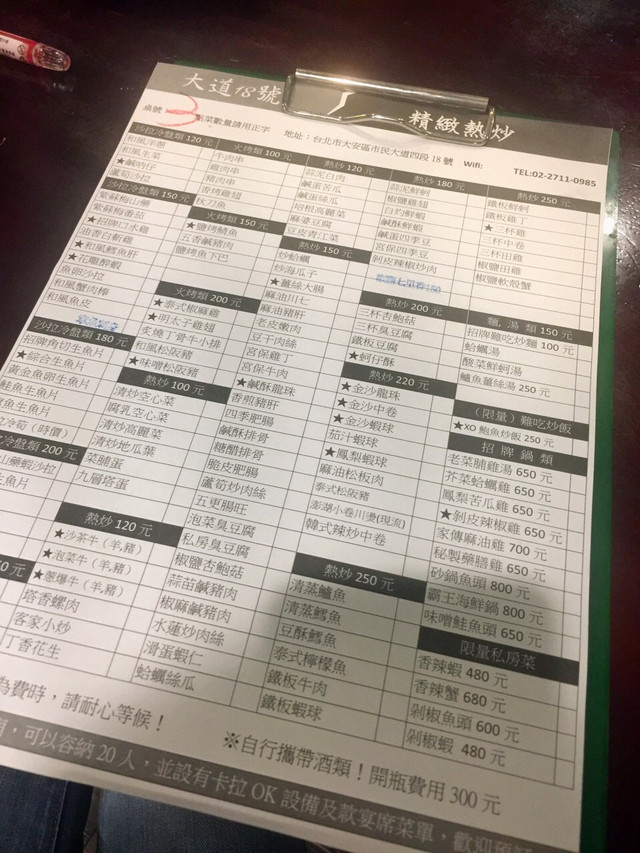 大道18號
精緻熱炒
桌號 3
劃菜數量請用正字 地址：台北市大安區市民大道四段18號 Wifi: TEL:02-2711-0985
沙拉冷盤類 120 元
和風洋蔥
和風生菜
★鹹蚋仔
蘆筍沙拉
沙拉冷盤類 150 元
紫蘇梅山藥
紫蘇梅番茄
★招牌口水雞
油香白斬雞
★和風鱈魚肝
★花雕醉蝦
魚卵沙拉
和風蟹肉棒
和風魚皮
沙拉冷盤類 180 元
招牌角切生魚片
★綜合生魚片
黃金魚卵生魚片
鮭魚生魚片
魚生魚片
冷筍（時價）
冷盤類 200 元
山藥蝦沙拉
生魚片
火烤類 100 元
牛肉串
雞肉串
豬肉串
香烤雞翅
秋刀魚
火烤類 150 元
★鹽烤鯖魚
五香鹹豬肉
鹽烤魚下巴
火烤類 200 元
★泰式椒麻雞
★明太子雞翅
炙燒丁骨牛小排
和風松阪豬
★味噌松阪豬
熱炒 100 元
清炒空心菜
腐乳空心菜
清炒高麗菜
清炒地瓜葉
菜脯蛋
九層塔蛋
熱炒 120 元
★沙茶牛（羊,豬）
★泡菜牛（羊,豬）
★蔥爆牛（羊,豬）
塔香螺肉
客家小炒
丁香花生
熱炒 120 元
蒜泥白肉
鹹蛋苦瓜
鹹蛋絲瓜
培根高麗菜
麻婆豆腐
豆皮青江菜
熱炒 150 元
炒蛤蠣
炒海瓜子
★薑絲大腸
麻油川七
麻油豬肝
老皮嫩肉
豆干肉絲
宮保雞丁
宮保牛肉
★鹹酥龍珠
香煎豬肝
四季肥腸
鹹酥排骨
糖醋排骨
脆皮肥腸
蘆筍炒肉絲
五更腸旺
泡菜臭豆腐
私房臭豆腐
椒鹽杏鮑菇
蒜苗鹹豬肉
椒麻鹹豬肉
水蓮炒肉絲
滑蛋蝦仁
蛤蠣絲瓜
熱炒 180 元
蒜泥鮮蚵
椒鹽雞翅
白灼鮮蝦
鹹酥鮮蝦
鹹蛋四季豆
宮保四季豆
剝皮辣椒炒肉
熱炒 200 元
三杯杏鮑菇
三杯臭豆腐
鐵板豆腐
★蚵仔酥
熱炒 220 元
★金沙龍珠
★金沙中卷
★金沙蝦球
茄汁蝦球
★鳳梨蝦球
麻油松板肉
泰式松阪豬
澎湖小卷川燙(現流)
韓式辣炒中卷
熱炒 250 元
清蒸鱸魚
清蒸鱈魚
豆酥鱈魚
泰式檸檬魚
鐵板牛肉
鐵板蝦球
熱炒 250 元
鐵板鮮蚵
鐵板雞丁
★三杯雞
三杯中卷
三杯田雞
椒鹽田雞
椒鹽軟殼蟹
麵, 湯類 150 元
招牌雞吃炒麵 100 元
蛤蠣湯
酸菜鮮蚵湯
鱸魚薑絲湯 250 元
（限量）難吃炒飯
★XO 鮑魚炒飯 250 元
招 牌 鍋 類
老菜脯雞湯 650 元
芥菜蛤蠣雞 650 元
鳳梨苦瓜雞 650 元
★剝皮辣椒雞 650 元
家傳麻油雞 700 元
秘製藥膳雞 650 元
砂鍋魚頭 800 元
霸王海鮮鍋 800 元
味噌鮭魚頭 650 元
限量私房菜
香辣蝦 480 元
香辣蟹 680 元
剁椒魚頭 600 元
剁椒蝦 480 元
為費時，請耐心等候！
※自行攜帶酒類！開瓶費用 300 元
，可以容納 20 人，並設有卡拉 OK 設備及款宴席菜單，歡迎預